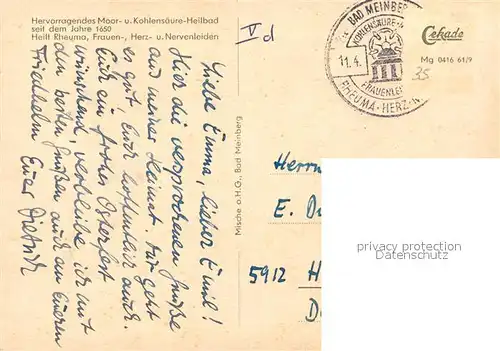 Hervorragendes Moor- u. Kohlensäure-Heilbad
seit dem Jahre 1650
Heilt Rheuma, Frauen-, Herz- u. Nervenleiden
V d
Liebe Emma, lieber Emil!
Hier die versprochenen Grüße
aus meiner Heimat. Mir geht
es gut, Euch hoffentlich auch.
Euch ein frohes Osterfest
wünschend, verbleibe ich mit
den besten Grüßen auch an Euren
Friedhelm Euer Dietrich
Mische o.H.G., Bad Meinberg
BAD MEINBER
KOHLENSÄURE-
11.4.
FRAUENLEI
RHEUMA-HERZ-N
Cekade
Mg 0416 61/9
35
Herrn
E.
5912 H
privacy protection
Datenschutz